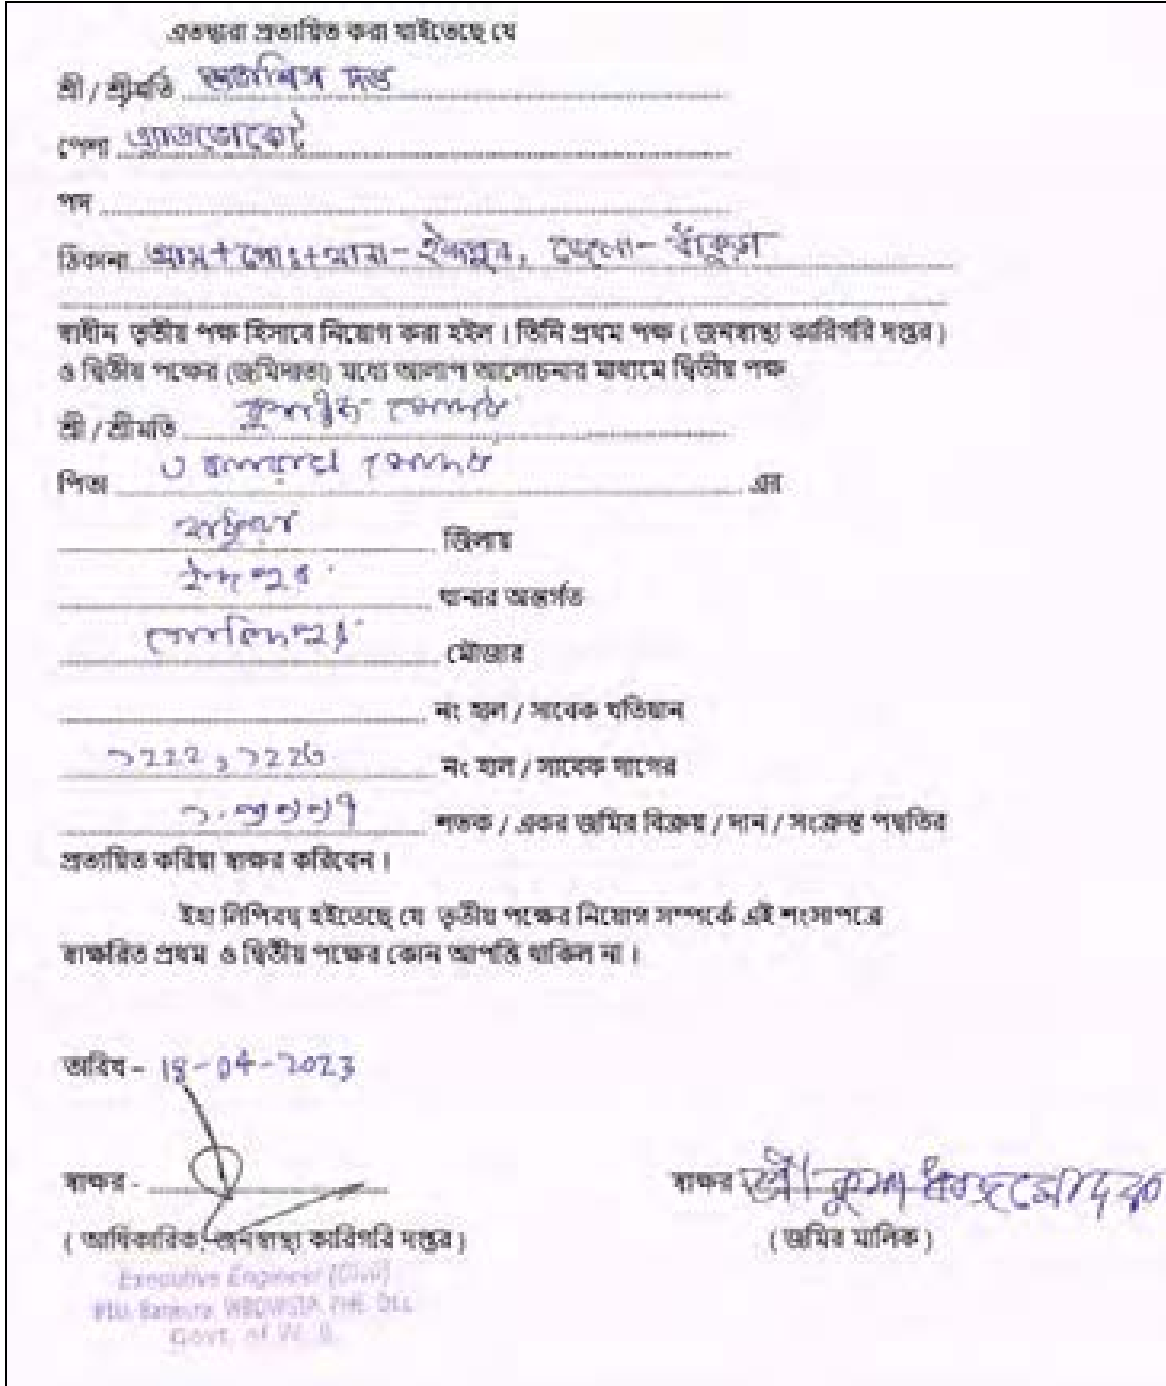 এতদ্বারা প্রত্যয়িত করা যাইতেছে যে
শ্রী / শ্রীমতি দত্ত
পেশা এ্যাডভোকেট
পদ
ঠিকানা গ্রাম+পোঃ+থানা-ইন্দপুর, জেলা-বাঁকুড়া
স্বাধীন তৃতীয় পক্ষ হিসাবে নিয়োগ করা হইল । তিনি প্রথম পক্ষ ( জনস্বাস্থ্য কারিগরি দপ্তর )
ও দ্বিতীয় পক্ষের (জমিদাতা) মধ্যে আলাপ আলোচনার মাধ্যমে দ্বিতীয় পক্ষ
শ্রী / শ্রীমতি
পিতা এর
বাঁকুড়া জিলায়
ইন্দপুর থানার অন্তর্গত
মৌজার
নং হাল / সাবেক খতিয়ান
নং হাল / সাবেক দাগের
শতক / একর জমির বিক্রয় / দান / সংক্রান্ত পদ্ধতির
প্রত্যয়িত করিয়া স্বাক্ষর করিবেন ।
ইহা লিপিবদ্ধ হইতেছে যে তৃতীয় পক্ষের নিয়োগ সম্পর্কে এই শংসাপত্রে
স্বাক্ষরিত প্রথম ও দ্বিতীয় পক্ষের কোন আপত্তি থাকিল না ।
তারিখ - 18-04-2023
স্বাক্ষর -
স্বাক্ষর শ্রী
( আধিকারিক, জনস্বাস্থ্য কারিগরি দপ্তর )
( জমির মালিক )
Executive Engineer (Civil)
PIU Bankura, WBDWSIP, PHE Dte.
Govt. of W. B.